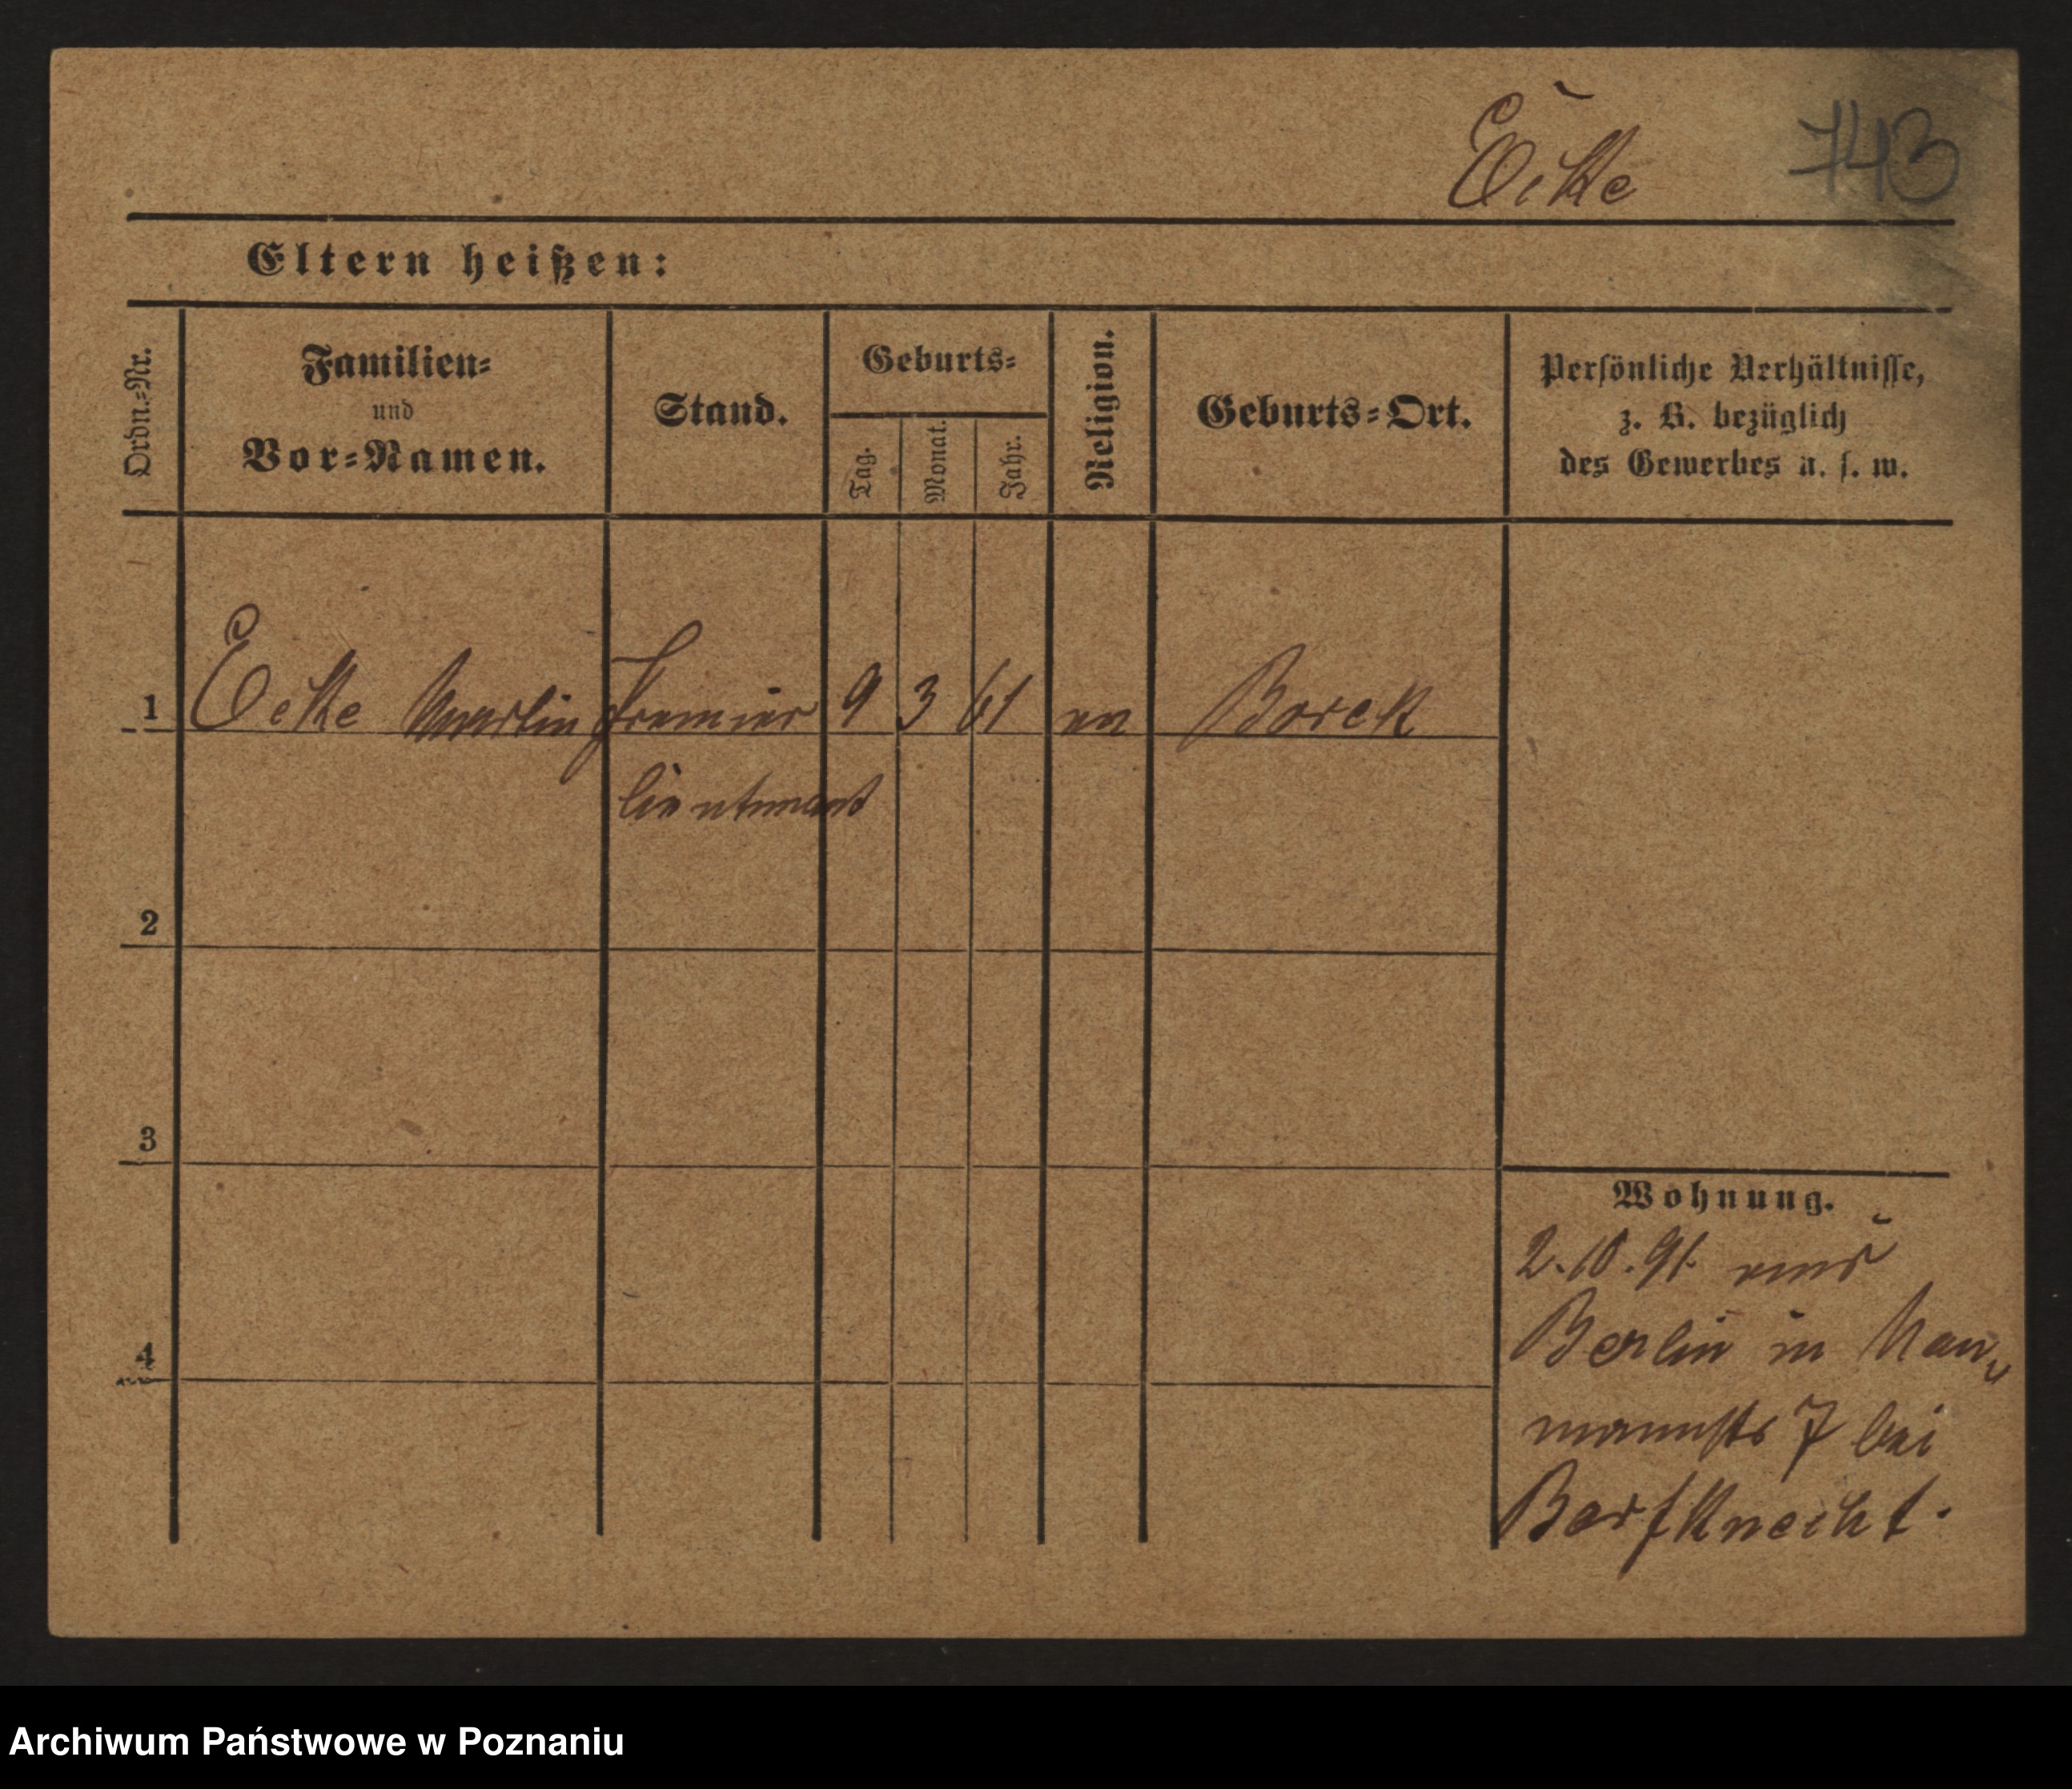 743
Eltern heißen:
Ordn.-Nr.
Familien-
und
Vor-Namen.
Stand.
Geburts-
Tag.
Monat.
Jahr.
Religion.
Geburts-Ort.
Persönliche Verhältnisse,
z. B. bezüglich
des Gewerbes u. s. w.
1 Martin Premier 9 3 61 ev Borek
lieutenant
2
3
4
Wohnung.
2.10.91. aus
Berlin in Nau-
mannstr 7 bei
Barfknecht.
Archiwum Państwowe w Poznaniu